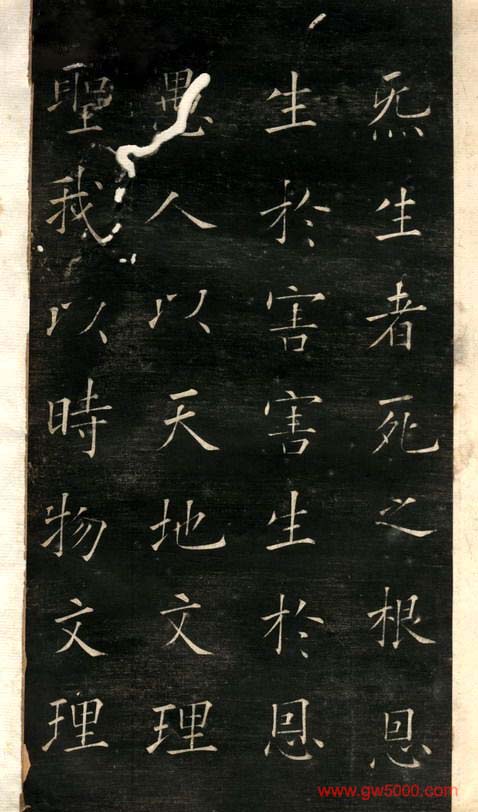 炁生者死之根恩
生於害害生於恩
愚人以天地文理
聖我以時物文理
www.gw5000.com